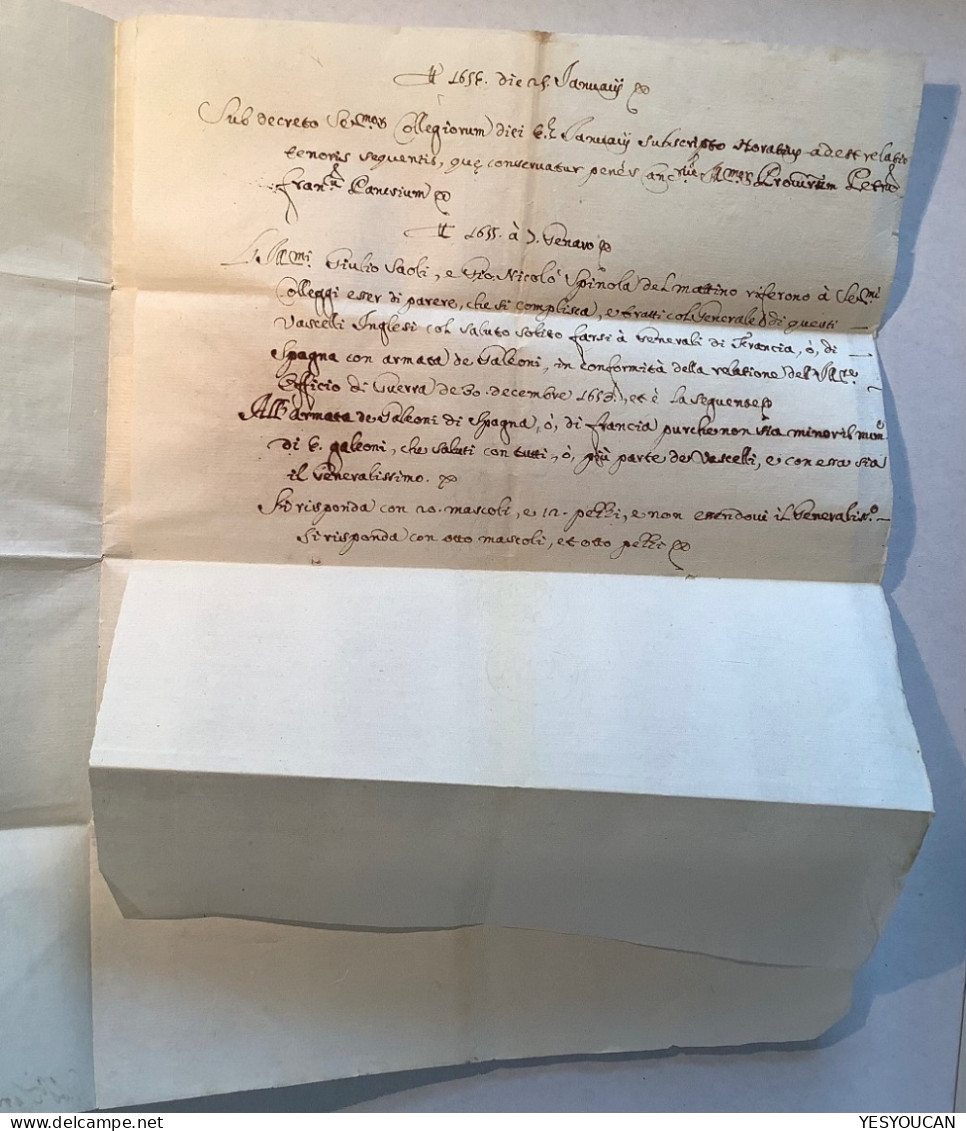 1655. die 25. Januarij
Sub decreto Ser.mor Collegiorum diei Januarij subscripto adest relatio
tenoris sequentis, quę conservatur penes Ill.mor
Fran.
1655. à 7. Genaro
Ill.mi Giulio Saoli, e Gio. Nicolò Spinola del mattino riferono à Ser.mi
Colleggi esser di parere, che si complisca, e tratti col Generale di questi
Vascelli Inglesi col saluto solito farsi à Generali di Francia, ò, di
Spagna con armata de Galeoni, in conformità della relatione dell'
Officio di Guerra de 30. decembre et è la seguente
All'armata de Galeoni di Spagna, ò, di francia purche non sia minor il num.o
di 6. galeoni, che saluti con tutti, ò, più parte de Vascelli, e con essa sia
il Generalissimo.
Si risponda con 20. mascoli, e 12. pezzi, e non essendovi il Generaliss.o
si risponda con otto mascoli, et otto pezzi
YESYOUCAN